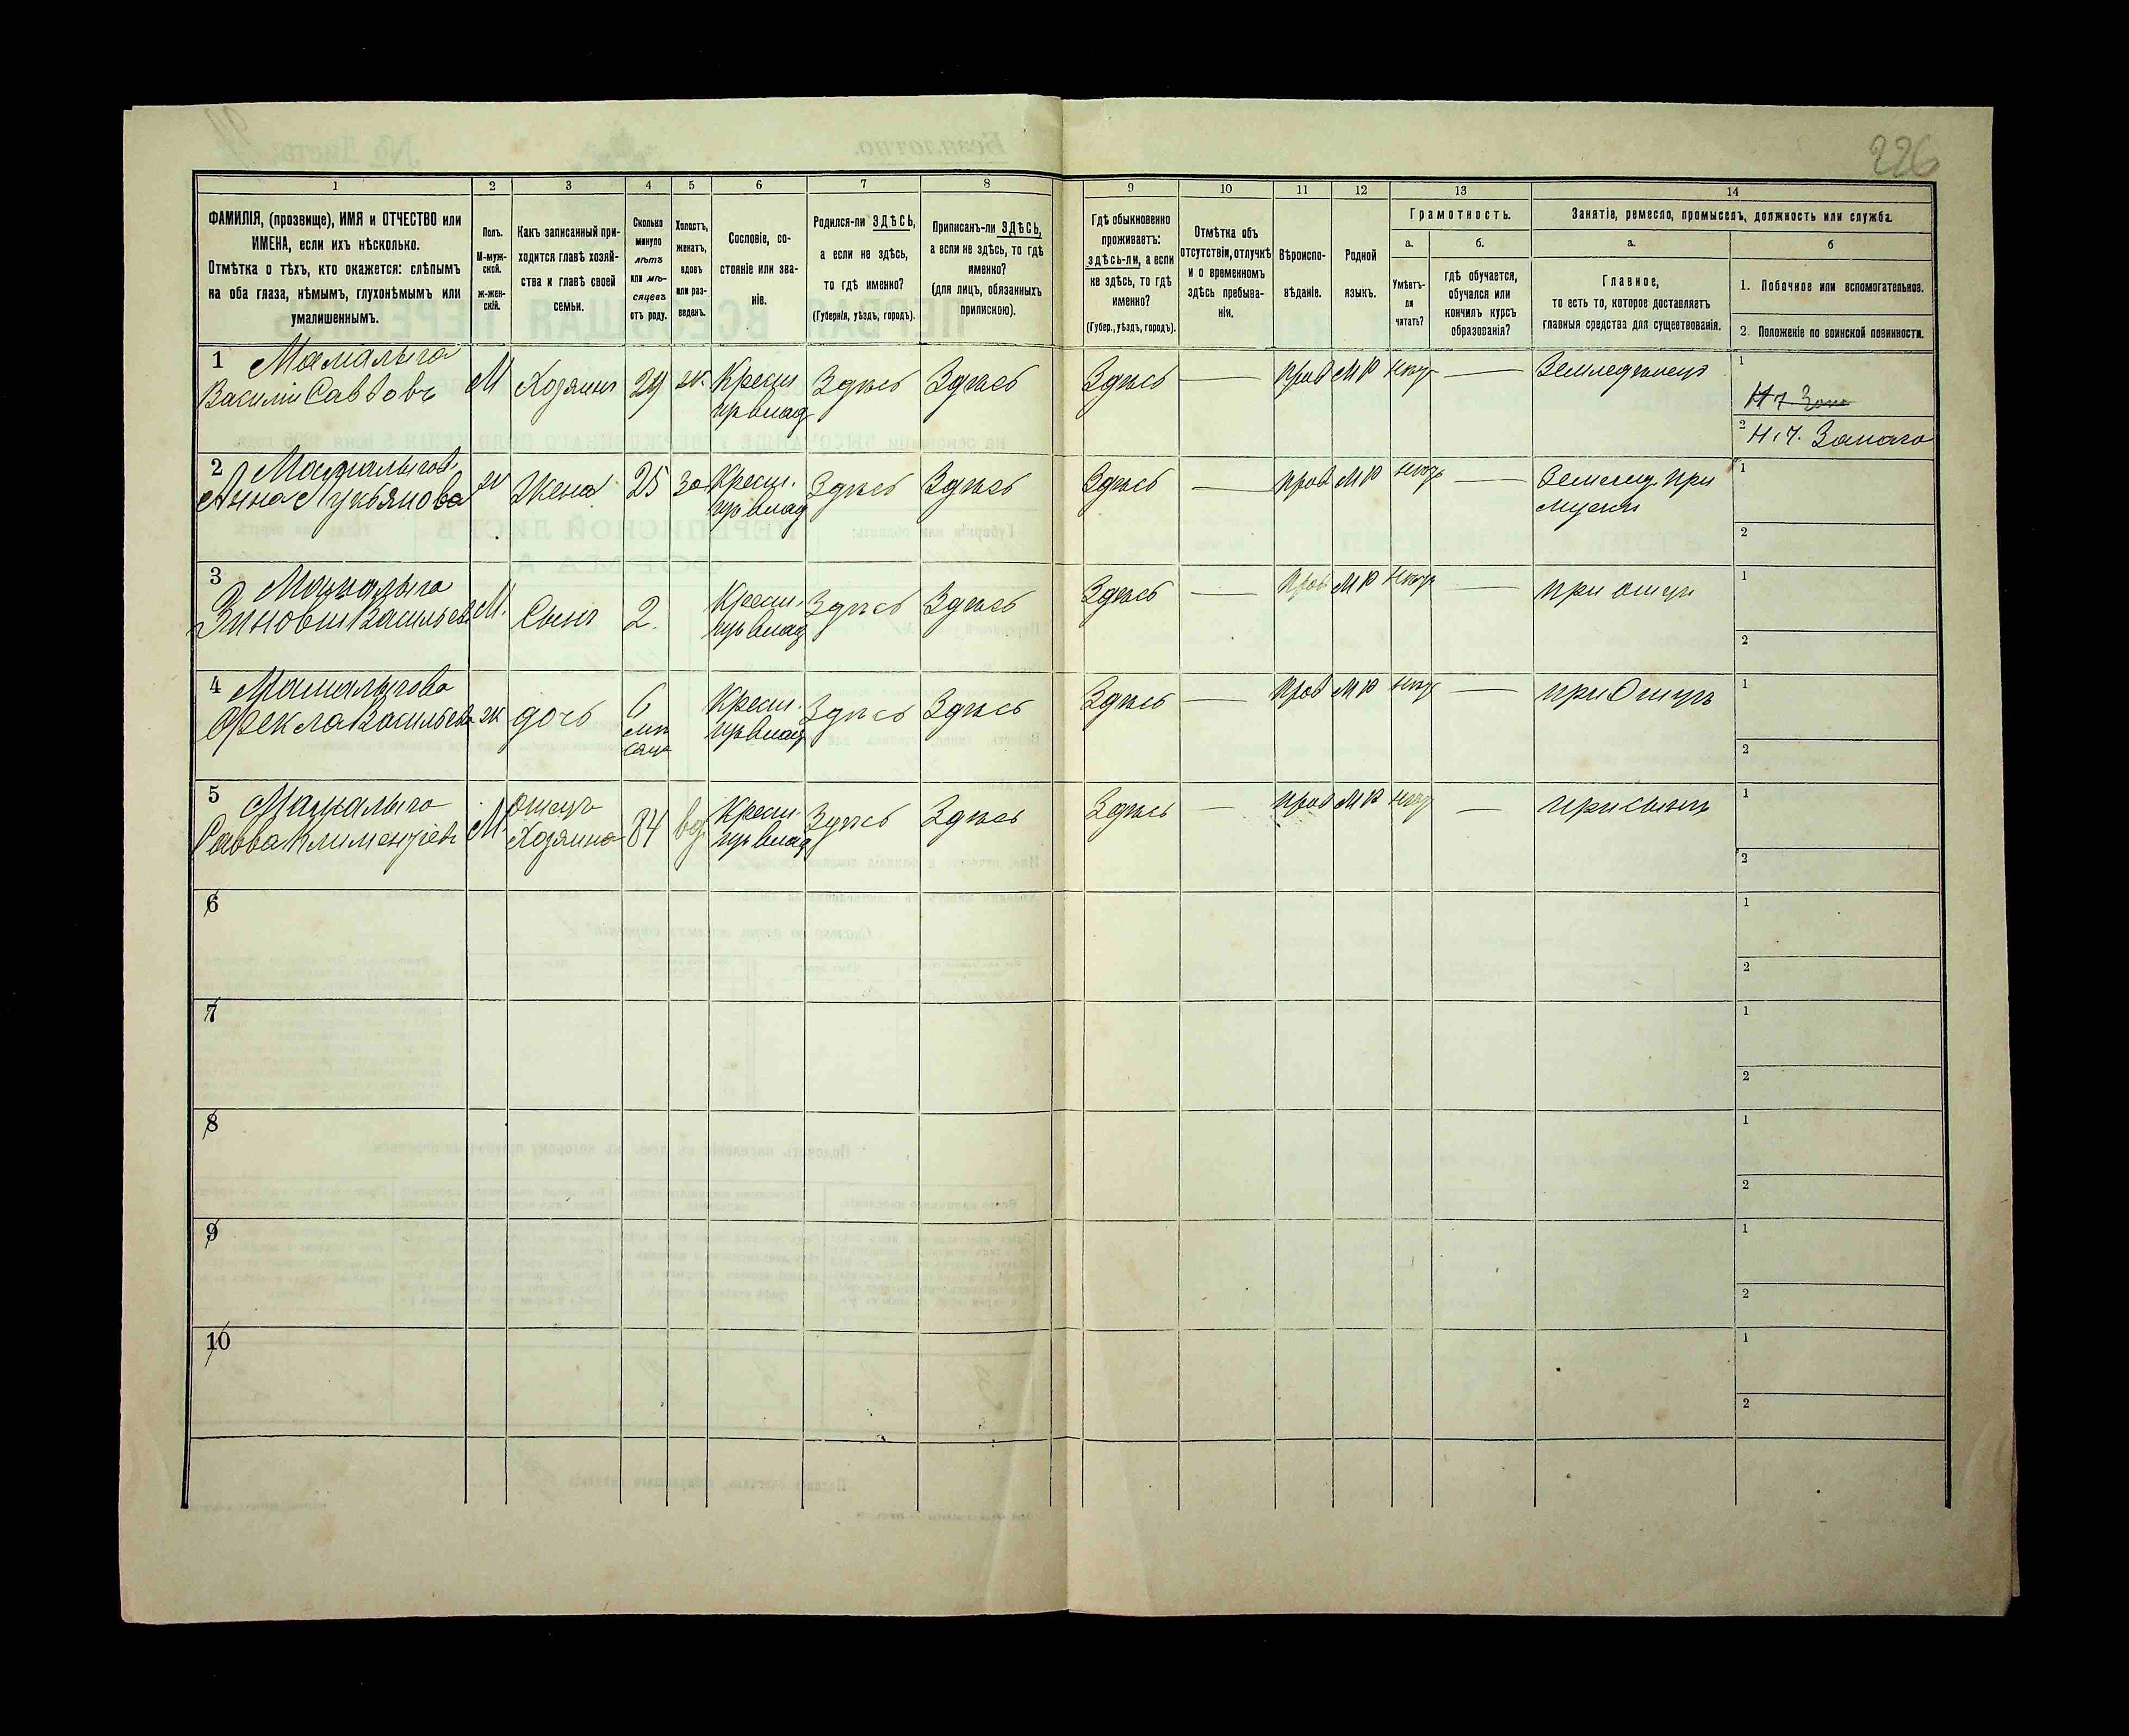 226
1 2 3 4 5 6 7 8 9 10 11 12 13 14
ФАМИЛІЯ, (прозвище), ИМЯ и ОТЧЕСТВО или
ИМЕНА, если ихъ нѣсколько.
Отмѣтка о тѣхъ, кто окажется: слѣпымъ
на оба глаза, нѣмымъ, глухонѣмымъ или
умалишеннымъ.
Полъ.
М-муж-
ской.
ж-жен-
скій.
Какъ записанный при-
ходится главѣ хозяй-
ства и главѣ своей
семьи.
Сколько
минуло
лѣтъ
или мѣ-
сяцевъ
отъ роду.
Холостъ,
женатъ,
вдовъ
или раз-
веденъ.
Сословіе, со-
стояніе или зва-
ніе.
Родился-ли ЗДѢСЬ,
а если не здѣсь,
то гдѣ именно?
(Губернія, уѣздъ, городъ).
Приписанъ-ли ЗДѢСЬ,
а если не здѣсь, то гдѣ
именно?
(для лицъ, обязанныхъ
припискою).
Гдѣ обыкновенно
проживаетъ:
здѣсь-ли, а если
не здѣсь, то гдѣ
именно?
(Губер., уѣздъ, городъ).
Отмѣтка объ
отсутствіи, отлучкѣ
и о временномъ
здѣсь пребыва-
ніи.
Вѣроиспо-
вѣданіе.
Родной
языкъ.
Грамотность.
а.
Умѣетъ-
ли
читать?
б.
гдѣ обучается,
обучался или
кончилъ курсъ
образованія?
Занятіе, ремесло, промыселъ, должность или служба.
а.
Главное,
то есть то, которое доставляетъ
главныя средства для существованія.
б
1. Побочное или вспомогательное.
2. Положеніе по воинской повинности.
1 Мамалыга
Василій Саввовъ
М
Хозяинъ
29
ж.
Крест
Здѣсь
Здѣсь
Здѣсь
прав
МР
Земледѣлецъ
1
2
2 Мамалыгова
Анна Лукьянова
ж
Жена
25
За
Крест.
Здѣсь
Здѣсь
Здѣсь
прав
МР
при
мужѣ
1
2
3 Мамалыга
Зиновій Васильевъ
М.
Сынъ
2.
Крест.
Здѣсь
Здѣсь
Здѣсь
прав
МР
при отцѣ
1
2
4 Мамалыгова
Фекла Васильева
ж
дочь
6
мѣ
сяцъ
Крест.
Здѣсь
Здѣсь
Здѣсь
прав
МР
при Отцѣ
1
2
5 Мамалыга
Савва Климентіевъ
М
Отецъ
Хозяина
84
вд.
Крест
Здѣсь
Здѣсь
Здѣсь
прав
МР
при сынѣ
1
2
6
1
2
7
1
2
8
1
2
9
1
2
10
1
2